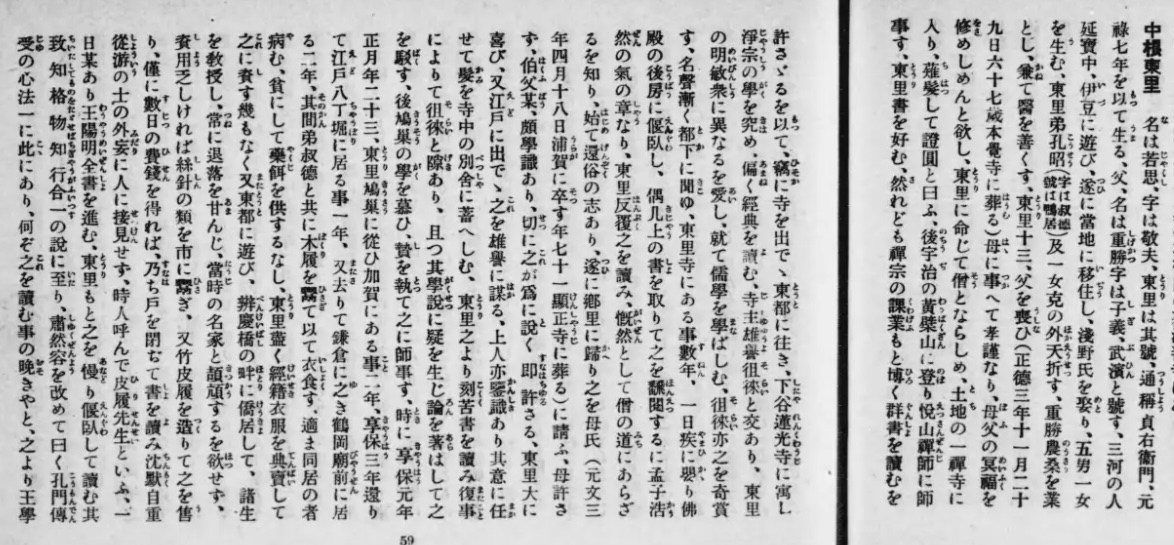 中根東里 名は若思、字は敬夫、東里は其號、通稱貞右衞門、元
祿七年を以て生る、父、名は重勝字は子義、武濱と號す、三河の人
延寶中、伊豆に遊び、遂に當地に移住し、淺野氏を娶り、五男一女
を生む、東里弟孔昭(字は叔德號は鴨居)及一女克の外夭折す、重勝農桑を業
とし、兼て醫を善くす、東里十三、父を喪ひ(正德三年十一月二十
九日六十七歲本覺寺に葬る)母に事へて孝謹なり、母父の冥福を
修めしめんと欲し、東里に命じて僧とならしめ、土地の一禪寺に
入り、薙髮して證圓と曰ふ、後宇治の黃檗山に登り悅山禪師に師
事す、東里書を好む、然れども禪宗の課業もと博く群書を讀むを
許さゞるを以て、竊に寺を出でゝ東都に往き、下谷蓮光寺に寓し
淨宗の學を究め、偏く經典を讀む、寺主雄譽徂徠と交あり、東里
の明敏衆に異なるを愛し、就て儒學を學ばしむ、徂徠亦之を奇賞
す、名聲漸く都下に聞ゆ、東里寺にある事數年、一日疾に嬰り佛
殿の後房に偃臥し、偶几上の書を取りて之を飜閱するに孟子浩
然の氣の章なり、東里反覆之を讀み、慨然として僧の道にあらざ
るを知り、始て還俗の志あり、遂に鄕里に歸り之を母氏(元文三
年四月十八日浦賀に卒す年七十一顯正寺に葬る)に請ふ、母許さ
ず、伯父某、頗學識あり、切に之が爲に說く、即許さる、東里大に
喜び、又江戶に出でゝ之を雄譽に謀る、上人亦鑒識あり其意に任
せて髮を寺中の別舍に蓄へしむ、東里之より刻苦書を讀み復事
によりて徂徠と隙あり、且つ其學說に疑を生じ論を著はして之
を駁す、後鳩巢の學を慕ひ、贄を執て之に師事す、時に享保元年
正月年二十三、東里鳩巢に從ひ加賀にある事二年、享保三年還り
て江戶八丁堀に居る事一年、又去りて鎌倉に之き鶴岡廟前に居
る二年、其間弟叔德と共に木履を鬻て以て衣食す、適ま同居の者
病む、貧にして藥餌を供するなし、東里盡く經籍衣服を典賣して
之に賚す幾もなく又東都に遊び、辨慶橋の畔に僑居して、諸生
を敎授し、常に退落を甘んじ、當時の名家と頡頏するを欲せず、
資用乏しければ絲針の類を市に鬻ぎ、又竹皮履を造りて之を售
り、僅に數日の費錢を得れば、乃ち戶を閉ぢて書を讀み沈默自重
從游の士の外妄に人に接見せず、時人呼んで皮履先生といふ、一
日某あり王陽明全書を進む、東里もと之を慢り偃臥して讀む其
致知格物知行合一の說に至り、肅然容を改めて曰く孔門傳
受の心法一に此にあり、何ぞ之を讀む事の晚きやと、之より王學
59